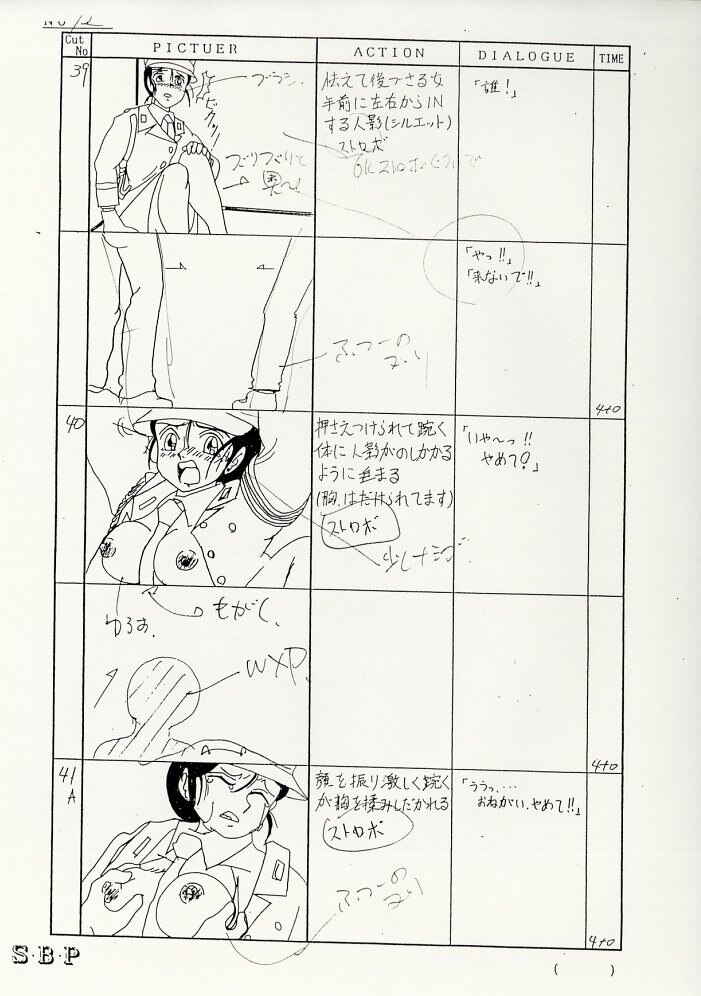 NO 12
Cut No
PICTUER
ACTION
DIALOGUE
TIME
39
ブラシ.
ビクッ!
怯えて後づさる女
年前に左右からIN
する人影(シルエット)
ストロボ
「誰!」
「やっ!!」
「来ないで!!」
ふつーの
4+0
40
押さえつけられて踠く
体に人影がのしかかる
ように
(胸、はだけられてます)
ストロボ
「いや〜っ!!
やめて!」
ゆるお.
もがく、
WXP.
4+0
41
A
顔を振り激しく踠く
が胸を揉みしだかれる
ストロボ
「ううっ…
おねがい、やめて!!」
ふつーの
4+0
S·B·P
( )